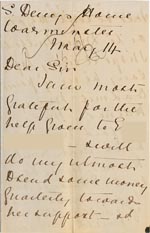 St Denys Home
Warminster
May 14
Dear Sir
I am most
grateful for the
help given to E
— I will
do my utmost
to send some money
quarterly towards
her support —